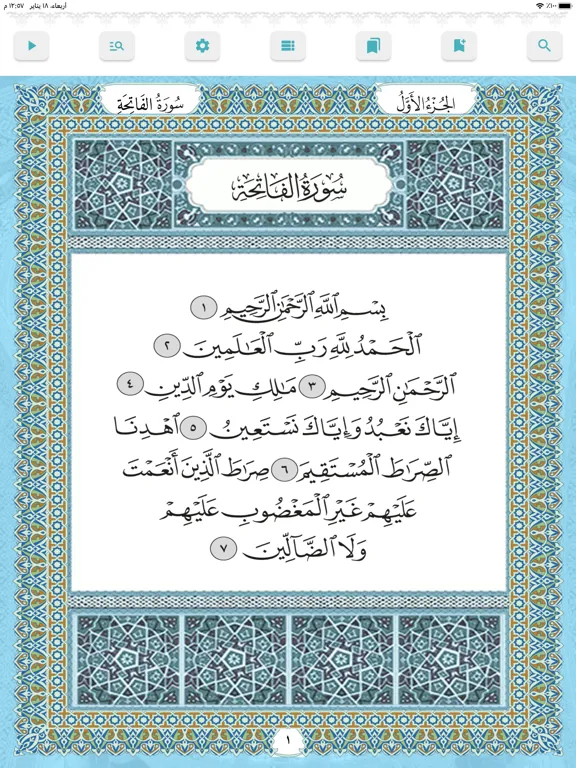 أربعاء، ١٨ يناير ١٢:٥٧ م
١٠٠٪
الجُزْءُ الأَوَّلُ
سُورَةُ الفَاتِحَةِ
سُورَةُ الفَاتِحَةِ
بِسْمِ اللَّهِ الرَّحْمَٰنِ الرَّحِيمِ ١
الْحَمْدُ لِلَّهِ رَبِّ الْعَالَمِينَ ٢
الرَّحْمَٰنِ الرَّحِيمِ ٣ مَالِكِ يَوْمِ الدِّينِ ٤
إِيَّاكَ نَعْبُدُ وَإِيَّاكَ نَسْتَعِينُ ٥ اهْدِنَا
الصِّرَاطَ الْمُسْتَقِيمَ ٦ صِرَاطَ الَّذِينَ أَنْعَمْتَ
عَلَيْهِمْ غَيْرِ الْمَغْضُوبِ عَلَيْهِمْ
وَلَا الضَّالِّينَ ٧
١